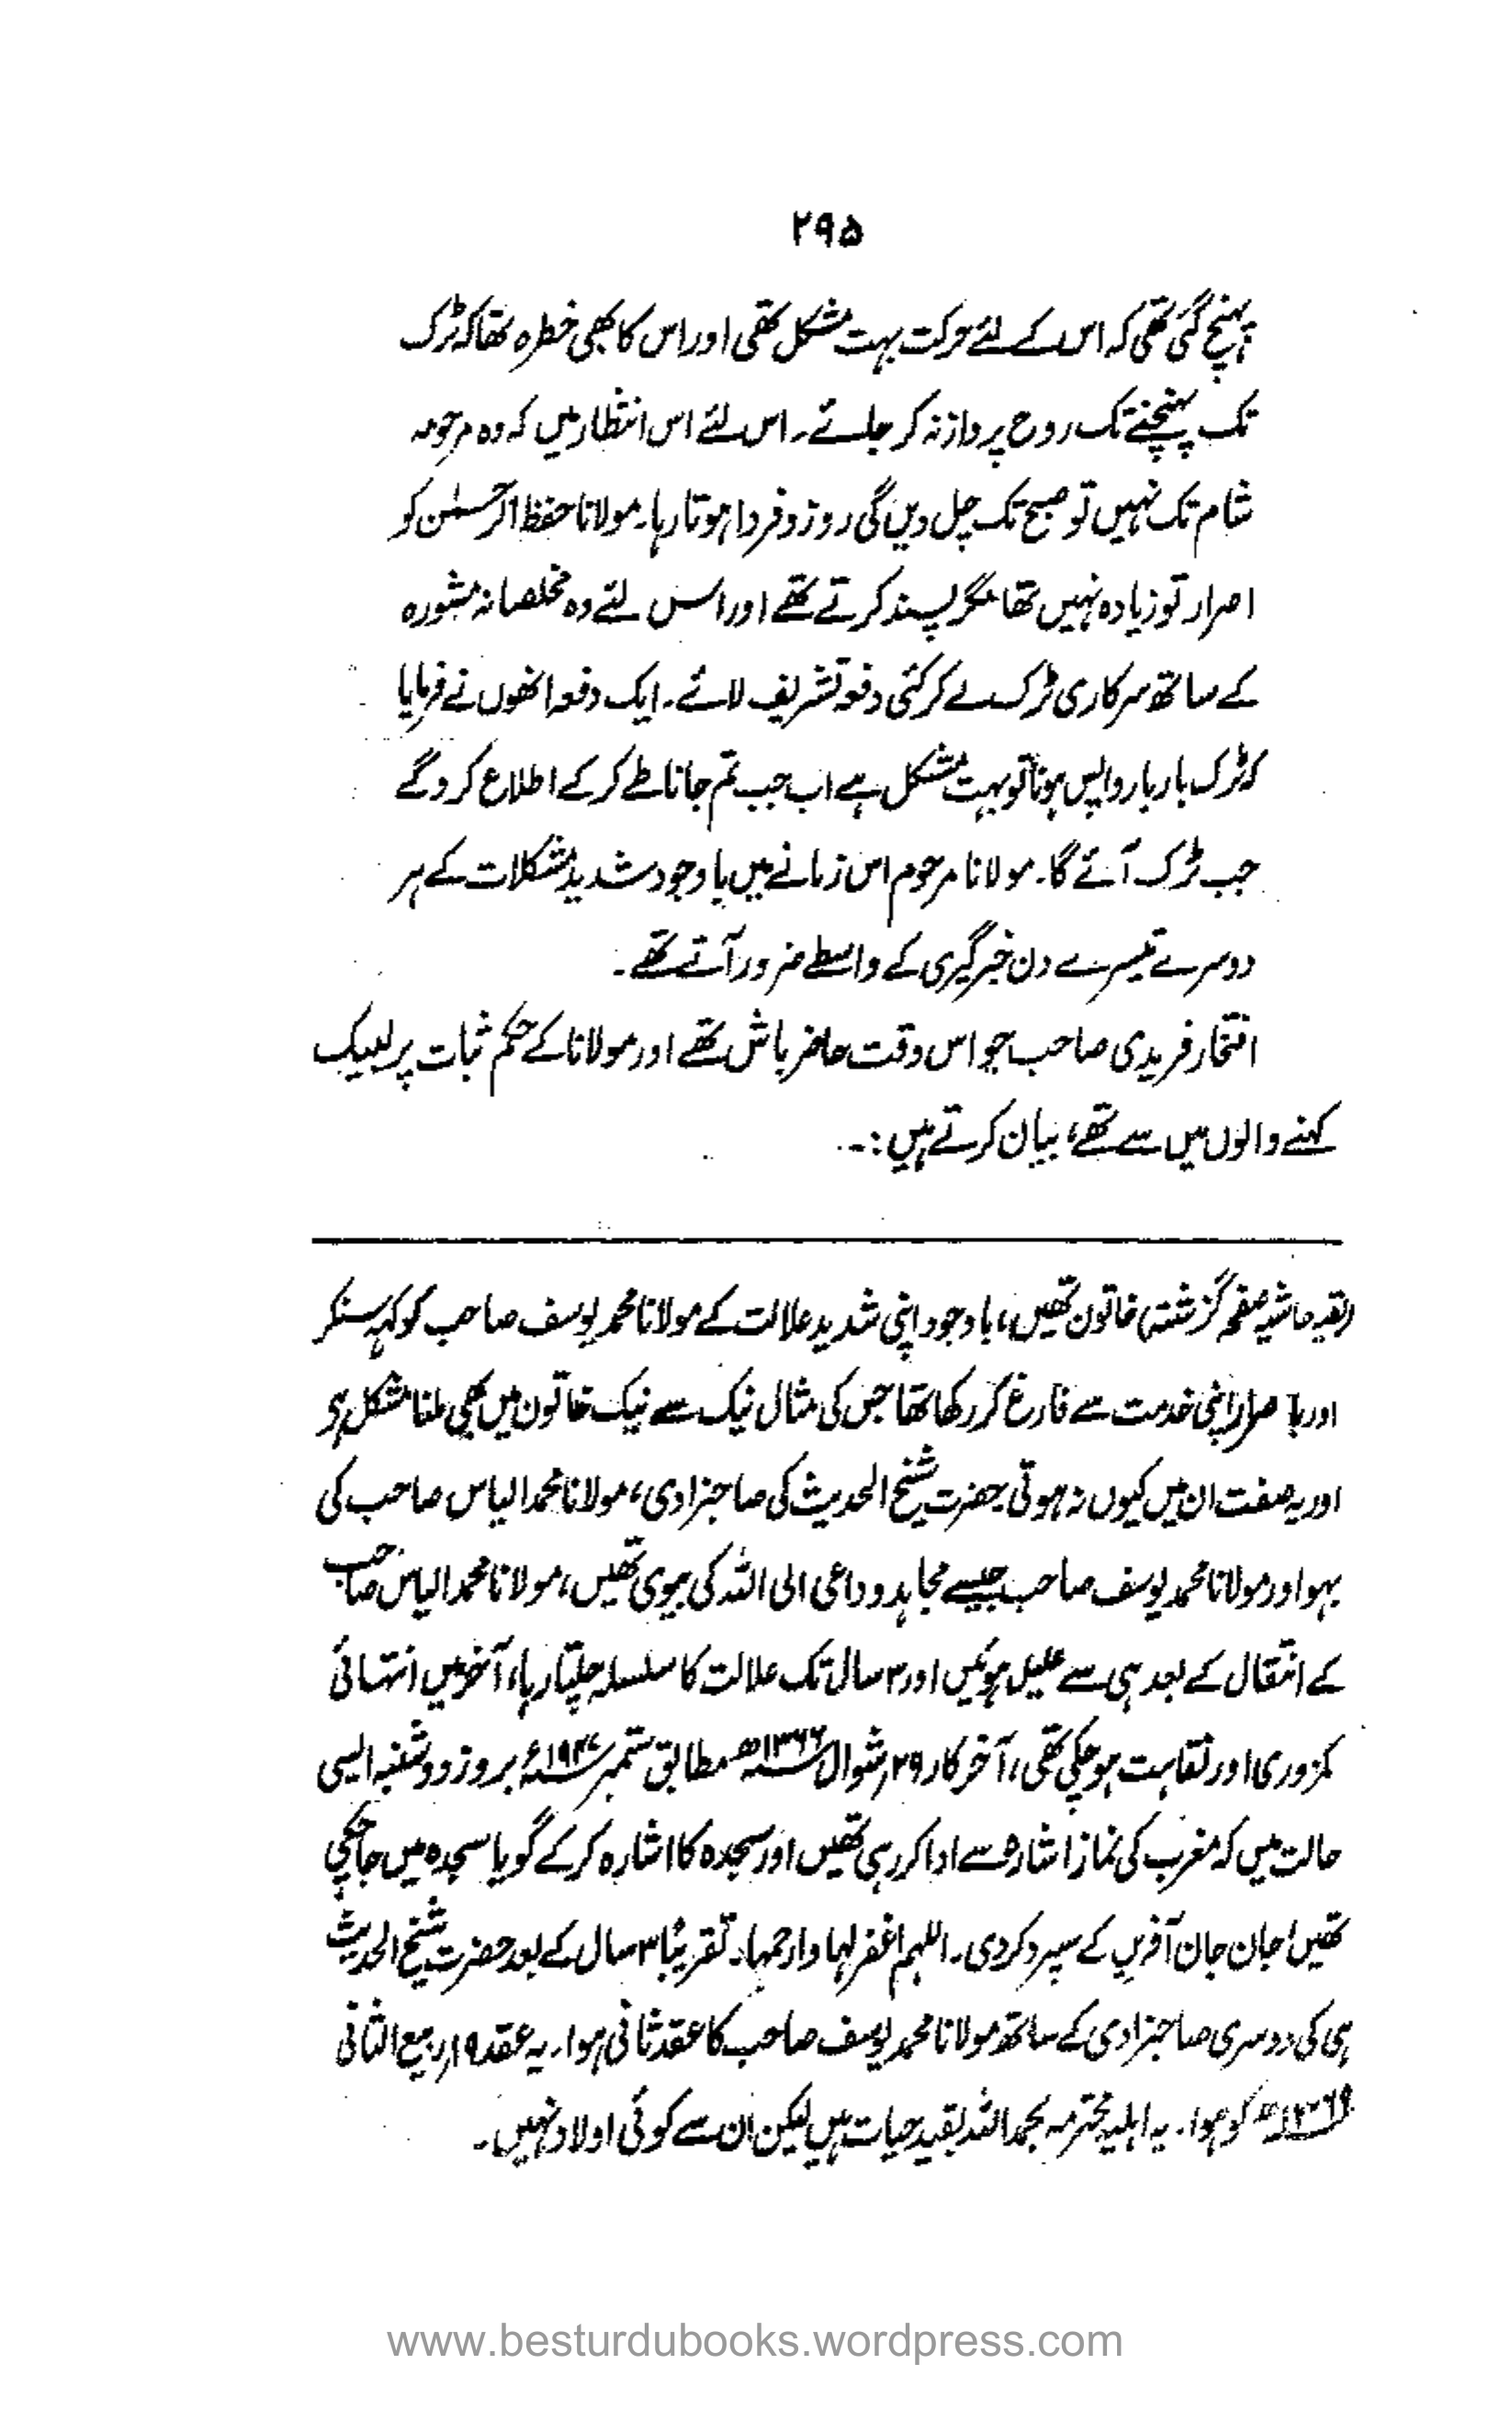 ۲۹۵
پہنچ گئی تھی کہ اس کے لئے حرکت بہت مشکل تھی اور اس کا بھی خطرہ تھا کہ ٹرک
تک پہنچنے تک روح پرواز نہ کر جائے۔ اس لئے اس انتظار میں کہ وہ مرحومہ
شام تک نہیں تو صبح تک چل دیں گی روز و فردا ہوتا رہا۔ مولانا حفظ الرحمٰن کو
اصرار تو زیادہ نہیں تھا مگر پسند کرتے تھے اور اس لئے وہ مخلصانہ مشورہ
کے ساتھ سرکاری ٹرک لے کر کئی دفعہ تشریف لائے۔ ایک دفعہ انھوں نے فرمایا
کہ ٹرک بار بار واپس ہونا تو بہت مشکل ہے اب جب تم جانا طے کر کے اطلاع کر دو گے
جب ٹرک آئے گا۔ مولانا مرحوم اس زمانے میں باوجود شدید مشکلات کے ہر
دوسرے تیسرے دن خبر گیری کے واسطے ضرور آتے تھے۔
افتخار فریدی صاحب جو اس وقت حاضر باش تھے اور مولانا کے حکم ثبات پر لبیک
کہنے والوں میں سے تھے، بیان کرتے ہیں:۔
(بقیہ حاشیہ صفحہ گزشتہ) خاتون تھیں، باوجود اپنی شدید علالت کے مولانا محمد یوسف صاحب کو کہہ سنکر
اور با صرار اپنی خدمت سے فارغ کر رکھا تھا جس کی مثال نیک سے نیک خاتون میں بھی ملنا مشکل ہے
اور یہ صفت ان میں کیوں نہ ہوتی حضرت شیخ الحدیث کی صاحبزادی، مولانا محمد الیاس صاحب کی
بہو اور مولانا محمد یوسف صاحب جیسے مجاہد و داعی الی اللہ کی بیوی تھیں، مولانا محمد الیاس صاحب
کے انتقال کے بعد ہی سے علیل ہوئیں اور ۳ سال تک علالت کا سلسلہ چلتا رہا، آخر میں انتہائی
کمزوری اور نقاہت ہو چکی تھی، آخر کار ۲۹ر شوال ۱۳۶۶ھ مطابق ستمبر ۱۹۴۷ء بروز دوشنبہ ایسی
حالت میں کہ مغرب کی نماز اشارہ سے ادا کر رہی تھیں اور سجدہ کا اشارہ کر کے گویا سجدہ میں جا چکی
تھیں، جان جان آفریں کے سپرد کردی۔ اللہم اغفر لہا وارحمہا۔ تقریباً ۳ سال کے بعد حضرت شیخ الحدیث
ہی کی دوسری صاحبزادی کے ساتھ مولانا محمد یوسف صاحب کا عقد ثانی ہوا۔ یہ عقد ۱۹ ربیع الثانی
۱۳۶۹ھ کو ہوا۔ یہ اہلیہ محترمہ بحمد اللہ بقید حیات ہیں لیکن ان سے کوئی اولاد نہیں۔
www.besturdubooks.wordpress.com